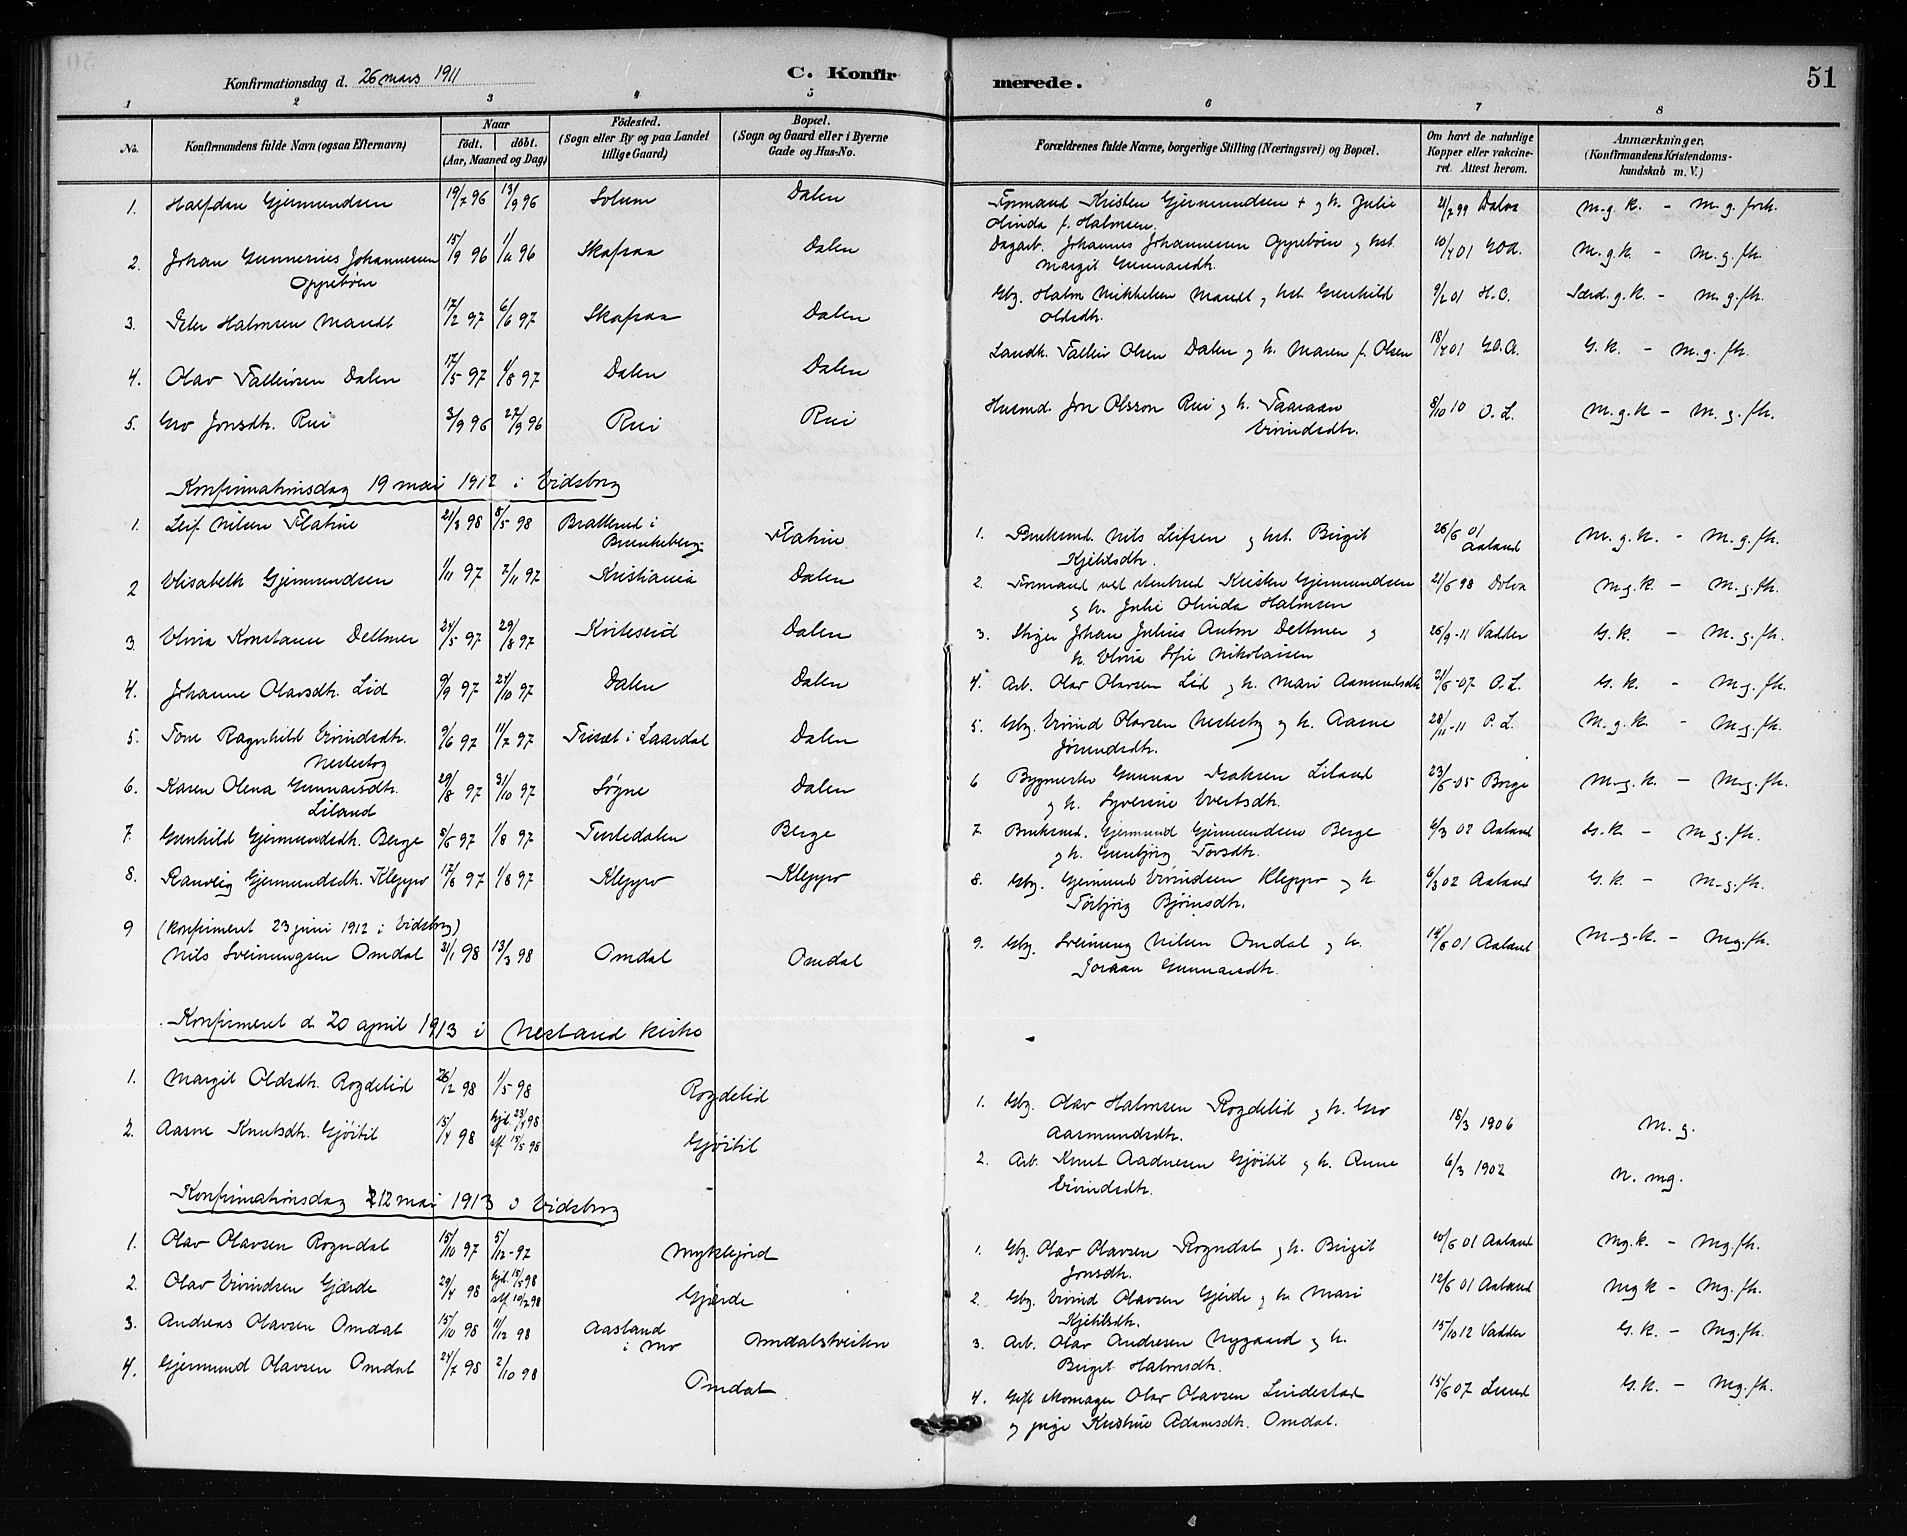 Konfirmationsdag d. 26 mars 1911
C. Konfirmerede.
51
1 2 3 4 5 6 7 8
No. Konfirmandens fulde Navn (ogsaa Efternavn) Naar födt. döbt. (Aar, Maaned og Dag) Födested. (Sogn eller By og paa Landet tillige Gaard) Bopæl. (Sogn og Gaard eller i Byerne Gade og Hus-No. Forældrenes fulde Navne, borgerlige Stilling (Næringsvei) og Bopæl. Om havt de naturlige Kopper eller vakcineret. Attest herom. Anmærkninger. (Konfirmandens Kristendomskundskab m. V.)
1. Halfdan Gjermundsen 19/7 96 13/9 96 Solum Dalen Formand Kristen Gjermundsen + og h. Julie
Olinda f. Halmsen. 21/7 99 Dalva M.g.k. - M.g.forh.
2. Johan Gunnerius Johannessen 15/9 96 1/11 96 Skafsaa Dalen Dagarb. Johannes Johannessen Oppebøen og hst.
Oppebøen Margit Gunnarsdtr. 10/7 01 M.g.k. - M.g.fh.
3. Peter Halmsen Mandt 17/2 97 6/6 97 Skafsaa Dalen Gbr. Halm Mikkelsen Mandt og hst. Gunhild
Olsdtr. 9/2 01 H.O. Særd.g.k. - M.g.fh.
4. Olav Talleivsen Dalen 17/5 97 1/8 97 Dalen Dalen Landh. Talleiv Olsen Dalen og h. Maren f. Olsen 18/7 01 G.k. - M.g.fh.
5. Gro Jonsdtr. Rui 3/9 96 27/9 96 Rui Rui Husmd. Jon Olsson Rui og h. Taaraan
Eivindsdtr. 8/10 10 O.L. M.g.k - M.g.fh.
Konfirmationsdag 19 mai 1912 i Eidsborg
1. Leif Nilsen Flatine 21/3 98 8/5 98 Bratterud i Flatine 1. Bruksmd. Nils Leifsen og hst. Birgit 26/6 01 Aaland M.g.k. - M.g.fh.
Brunkeberg Kjetilsdtr.
2 Elisabeth Gjermundsen 1/11 97 7/11 97 Kristiania Dalen 2. Formand ved Kristen Gjermundsen 21/6 98 Dolva M.g.k - M.g.fh.
og h. Julie Olinda Halmsen
3. Elvia Konstanse Dettmer 24/5 97 29/8 97 Kviteseid Dalen 3. Stiger Johan Julius Anton Dettmer og 26/9-11 Vadder G.k. - M.g.fh.
h. Elvia Sofie Nikolaisen
4. Johanne Olavsdtr. Lid 9/9 97 24/10 97 Dalen Dalen 4. Arb. Olav Olavsen Lid og h. Mari Aamundsdtr 21/6-07 O.L. G.k. - M.g.fh.
5. Tone Ragnhild Eivindsdtr. 9/6 97 11/7 97 Triset i Laardal Dalen 5. Gbr. Eivind Olavsen Nesteby og h. Aasne 28/11-11 P.L. M.g.k - M.g.fh.
Nesteby Jørundsdtr.
6. Karen Olena Gunnarsdtr. 29/8 97 31/10 97 Søgne Dalen 6 Bygmester Gunnar Isaksen Liland 23/6-05 Borge M.g.k. - M.g.fh.
Liland og h. Syverine Evertsdtr.
7. Gunhild Gjermundsdtr. Berge 8/6 97 1/8 97 Turtedalen Berge 7. Bruksmd. Gjermund Gjermundsen Berge 6/3 02 Aaland G.k - M.g.fh.
og h. Gunbjørg Torsdtr.
8. Ranveig Gjermundsdtr. Kleppo 17/6 97 1/8 97 Kleppo Kleppo 8. Gbr. Gjermund Eivindsen Kleppo og h 6/3 02 Aaland G.k - M.g.fh.
Torbjørg Bjørnsdtr.
9 (Konfirmeret 23 juni 1912 i Eidsborg)
Nils Sveinungsen Omdal 31/1 98 13/3 98 Omdal Omdal 9. Gbr. Sveinung Nilsen Omdal og h. 14/6 01 Aaland M.g.k. - Mg.fh.
Joraan Gunnarsdtr.
Konfirmeret d. 20 april 1913 i Nesland kirke
1. Margit Olavsdtr. Rogdelid 26/2 98 1/5 98 Rogdelid 1. Gbr. Olav Halmsen Rogdelid og h. Gro 18/3 1906 M.g.
Aasmundsdtr.
2. Aasne Knutsdtr. Gjöitil 15/4 98 hjd. 23/4 98 Gjöitil 2. Arb. Knut Aadnesen Gjöitil og h. Anne 6/3 1902 N. mg.
stf. 15/5 98 Eivindsdtr.
Konfirmationsdag 12 mai 1913 i Eidsborg
1. Olav Olavsen Rogndal 15/10 97 5/12-97 Myklejord 1. Gbr. Olav Olavsen Rogndal og h. Birgit 10/6 01 Aaland Mg.k. - Mg.fh.
Jonsdtr.
2. Olav Eivindsen Gjærde 29/4 98 hjd. 15/5 98 Gjærde 2. Gbr. Eivind Olavsen Gjerde og h. Mari 12/6 01 Aaland Mgk - Mg.fh.
stf. 10/7 98 Kjetilsdtr.
3. Andreas Olavsen Omdal 15/10 98 11/12 98 Aasland Omdalstveiten 3. Arb. Olav Andresen Nygaard og h. 15/10 12 Vadder G.k. - Mg.fh.
i Mo Birgit Halmsdtr.
4. Gjermund Olavsen Omdal 24/7 98 2/10 98 Omdal 4. Gift skomager Olav Olavsen Lindestad 15/6 07 Lund G.k. - Mg.fh.
og pige Kristine Adamsdtr. Omdal.